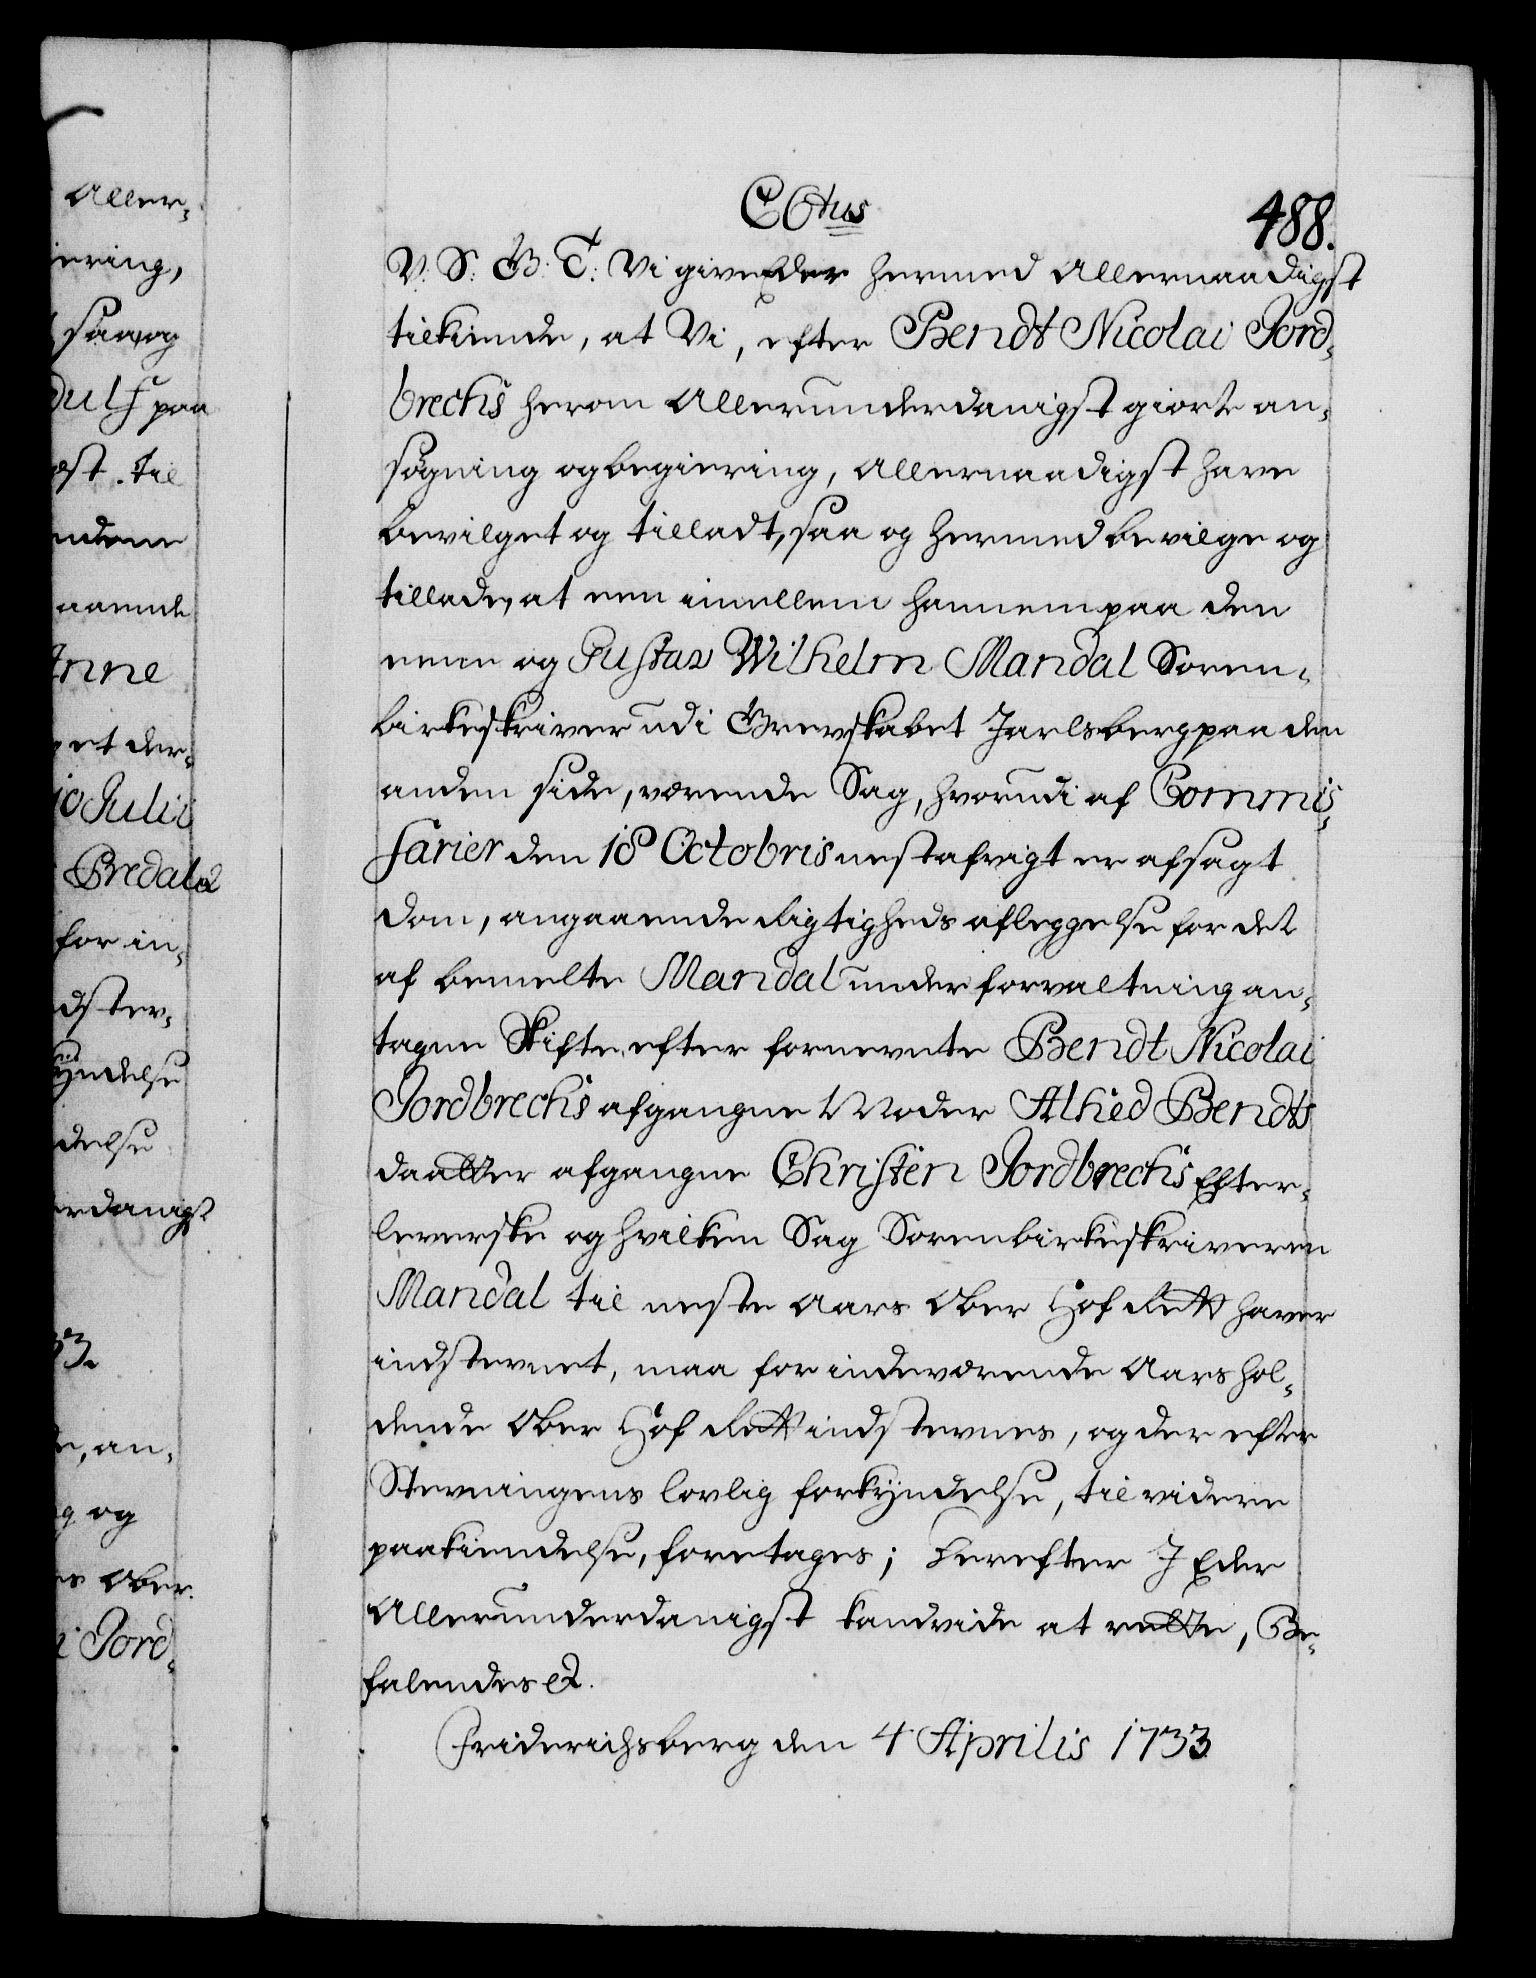 Aller-
iering,
saa og
dulf paa
est. til
endeme
aaende
Anne
get der-
10 Julii
Bredal et
for in-
dstev-
kyndelse
delse
erdanigst
33.
de, an-
g og
es Ober
i Jord-
C6tus
488.
V: S: G: T: Vi give Eder hermed Allernaadigst
tilkiende, at Vi, efter Bendt Nicolai Jord-
brechs herom Allerunderdanigst giorte an-
søgning og begiering, Allernaadigst have
bevilget og tilladt, saa og hermed bevilge og
tillade, at een imellem hannem paa den
eene og Gustav Wilhelm Mandal Soren-
birkeskriver udi Grevskabet Jarlsberg paa den
anden side, værende Sag, hvorudi af Commis-
sarier den 18 Octobris nestafvigt er afsagt
dom, angaaende Rigtigheds aflæggelse for det
af bemelte Mandal under forvaltning an-
tagne Skifte, efter fornevnte Bendt Nicolai
Jordbrechs afgangne Moder Alhed Bendts
daatter afgangne Christen Jordbrechs Efter-
leverske og hvilken Sag Sorenbirkeskriveren
Mandal til neste Aars Ober Hof Rett haver
indstevnet, maa for indeværende Aars hol-
dende Ober Hof Rett indstevnes, og der efter
Stevningens lovlig forkyndelse, til videre
paakiendelse, foretages; Derefter I Eder
Allerunderdanigst kand vide at rette, Be-
falendes et.
Friderichsberg den 4 Aprilis 1733